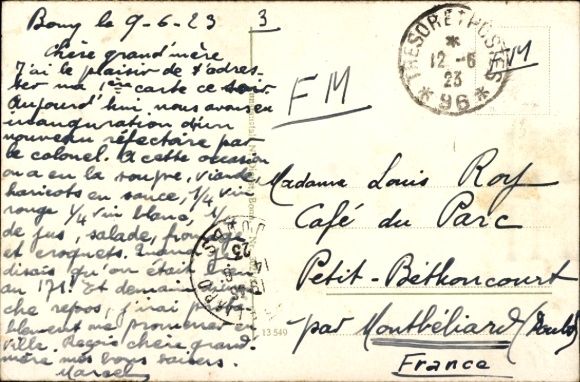 Bonn le 9-6-23
3
Chère grand'mère
J'ai le plaisir de t'adres-
ser ma 1ère carte ce soir
Aujourd'hui nous avons eu
inauguration d'un
nouveau réfectoire par
le colonel. A cette occasion
on a eu la soupe, viande
haricots en sauce, 1/4 vin
rouge 1/4 vin blanc,
de jus, salade, fromage
et croquets. Quand je
disais qu'on était bien
au 171! Et demain diman-
che repos, j'irai proba-
blement me promener en
ville. Reçois chère grand-
mère mes bons baisers.
Marcel
FM
TRESOR ET POSTES
*
12-6
23
* 96 *
FM
Madame Louis Roy
Café du Parc
Petit-Béthoncourt
par Montbéliard (Doubs)
France
13 549